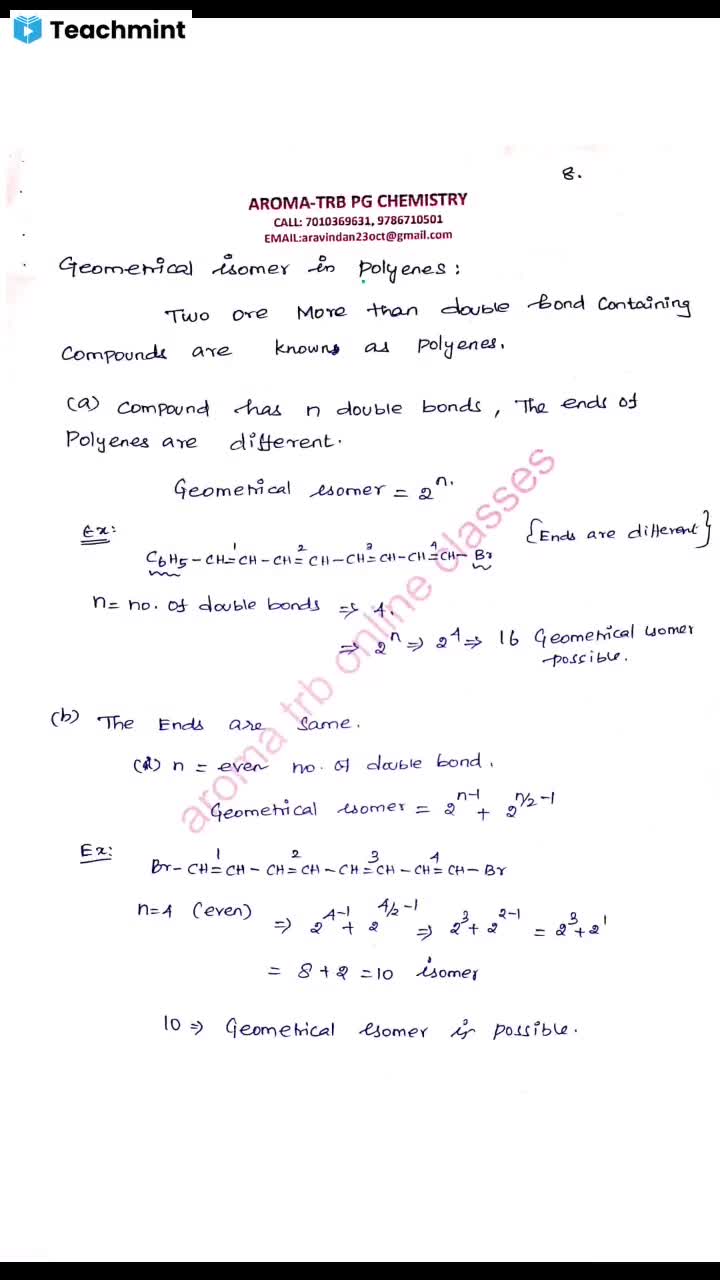 Teachmint
8.
AROMA-TRB PG CHEMISTRY
CALL: 7010369631, 9786710501
EMAIL:aravindan23oct@gmail.com
Geometrical isomer in polyenes:
Two ore More than double bond containing
compounds are knowns as polyenes.
(a) compound has n double bonds, The ends of
Polyenes are different.
Geometrical isomer = 2ⁿ.
Ex:
C6H5-CH=¹CH-CH=²CH-CH=³CH-CH=⁴CH-Br {Ends are different}
n= no. of double bonds ⇒ 4.
⇒ 2ⁿ ⇒ 2⁴ ⇒ 16 Geometrical isomer
possible.
(b) The Ends are same.
(i) n = even no. of double bond.
Geometrical isomer = 2^(n-1) + 2^(n/2-1)
Ex:
Br-CH=¹CH-CH=²CH-CH=³CH-CH=⁴CH-Br
n=4 (even) ⇒ 2^(4-1) + 2^(4/2-1) ⇒ 2³ + 2^(2-1) = 2³+2¹
= 8+2 =10 isomer
10 ⇒ Geometrical isomer is possible.
aroma trb online classes